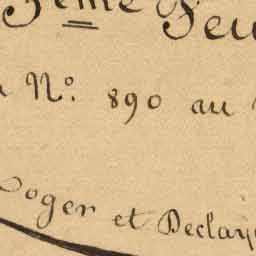 5ème Feu
Nº. 890 au
oger et Declay